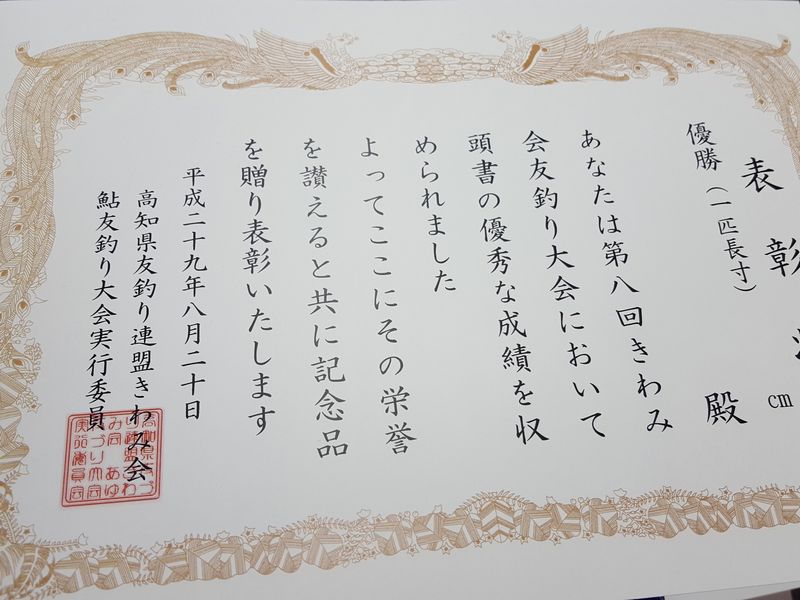 表彰状
優勝（一匹長寸）
cm
殿
あなたは第八回きわみ
会友釣り大会において
頭書の優秀な成績を収
められました
よってここにその栄誉
を讃えると共に記念品
を贈り表彰いたします
平成二十九年八月二十日
高知県友釣り連盟きわみ会
鮎友釣り大会実行委員